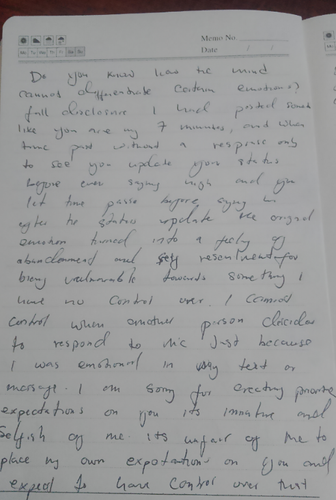 Memo No.
Date / /
Mo Tu We Th Fr Sa Su
Do you know how the mind
cannot differentiate certain emotions?
full disclosure I had posted
like you are my 7 minutes, and when
time past without a response only
to see you update your status
before even saying and you
let time pass before saying
after the status update the original
emotion turned into a feeling of
abandonment and resentment for
being vulnerable towards something I
have no control over. I cannot
control when another person decides
to respond to me just because
I was emotional in my text or
message. I am sorry for creating
expectations on you its immature and
selfish of me. its unfair of me to
place my own expectations on you and
expect to have control over that